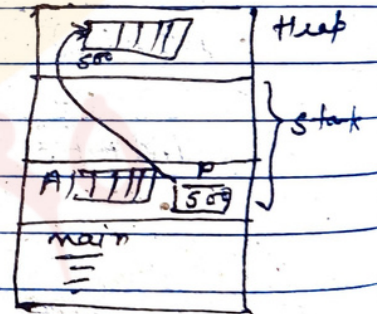 Heap
500
Stack
A
P
500
main